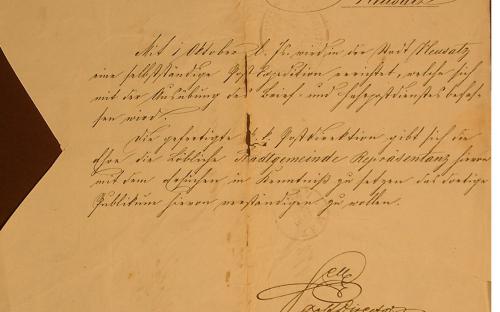 Neusatz
Mit 1 Oktober l. Js. wird in der Stadt Neusatz
eine selbstständige Postexpedition errichtet, welche sich
mit der Ausübung des Brief- und Fahrpostdienstes befas-
sen wird.
Die gefertigte k. k. Postdirektion gibt sich die
Ehre die löbliche Stadtgemeinde Repräsentanz hievon
mit dem Ersuchen in Kenntniß zu setzen das dortige
Publikum hievon verständigen zu wollen.
Postdirector